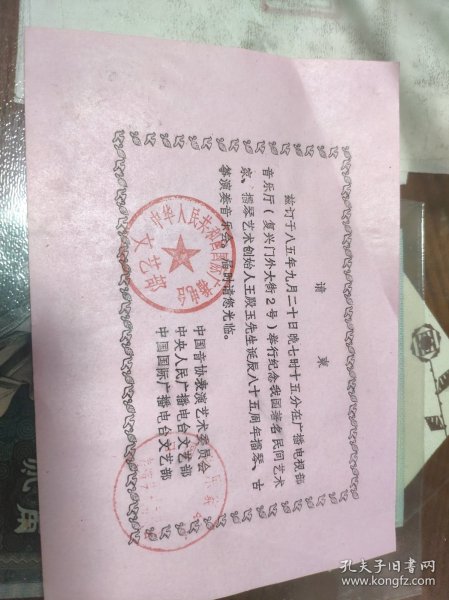 请柬
兹订于八五年九月二十日晚七时十五分在广播电视部
音乐厅(复兴门外大街2号)举行纪念我国著名民间艺术
家、擂琴艺术创始人王殿玉先生诞辰八十五周年擂琴、古
筝演奏音乐会。届时请您光临。
中国音协表演艺术委员会
中央人民广播电台文艺部
中国国际广播电台文艺部
中华人民共和国国际广播电台
文艺部
孔夫子旧书网
www.kongfz.com